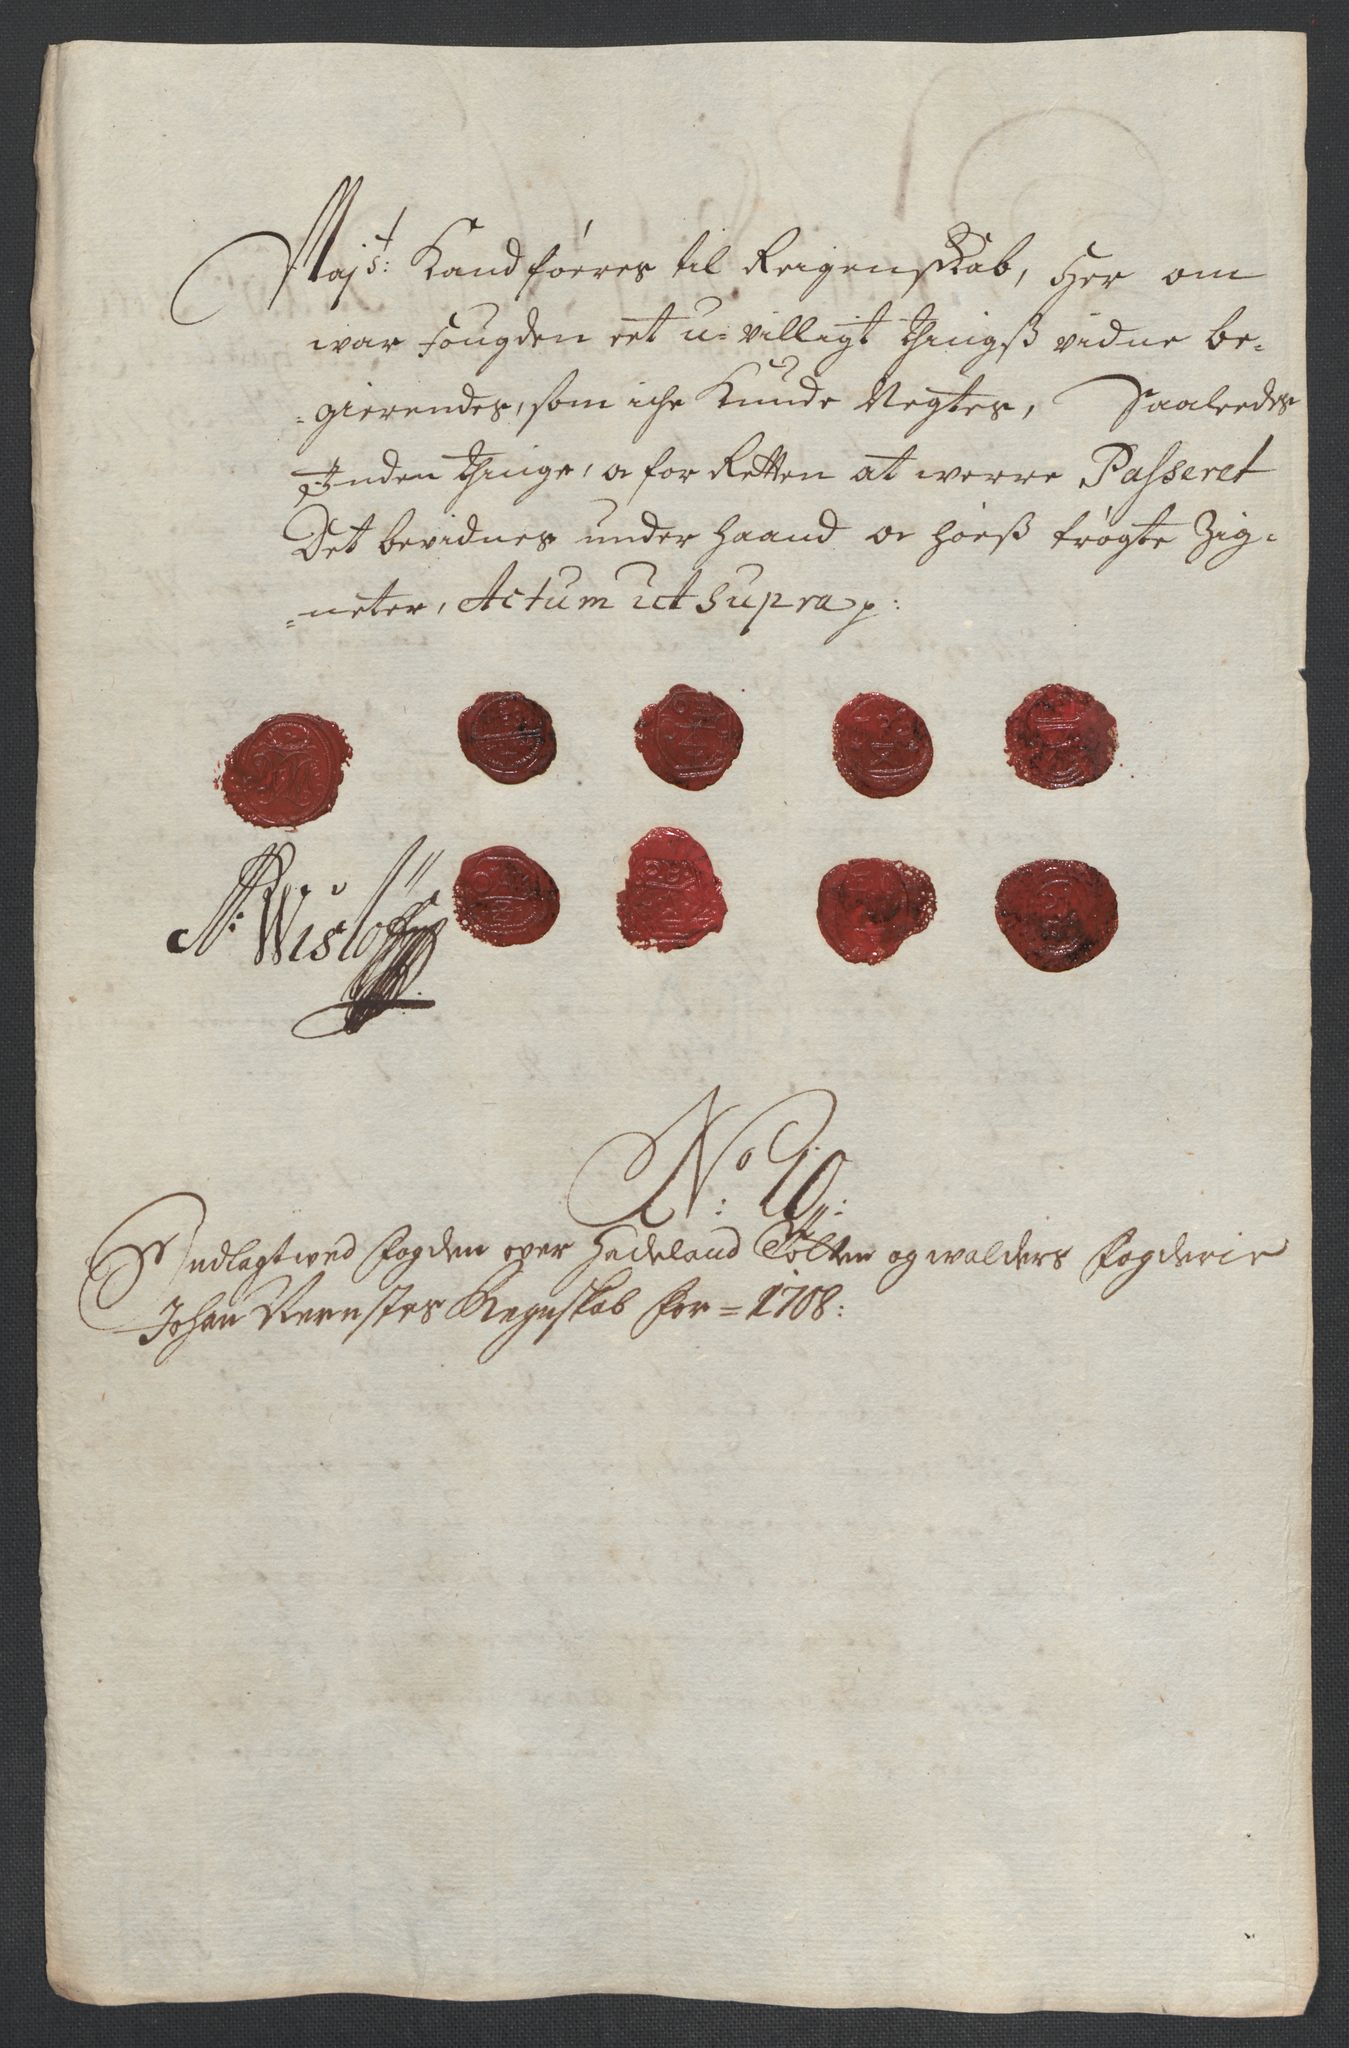 Majst: Kand føeres til Reigenskab, Her om
war Fougden eet u-villigt Thingß vidne be-
-gierendes, som iche Kunde Negtes, Saaleedes
Inden Thinge, oc for Retten at werre Passeret
Det bevidnes under Haand oc hoeß trøgte Zig-
-neter, Actum ut Supra p:
N: Wisløff
No: 10:
Indlagt wed Fogden over Hadeland Totten og walders Fogderie
Johan Neenstes Regnskab for = 1708: